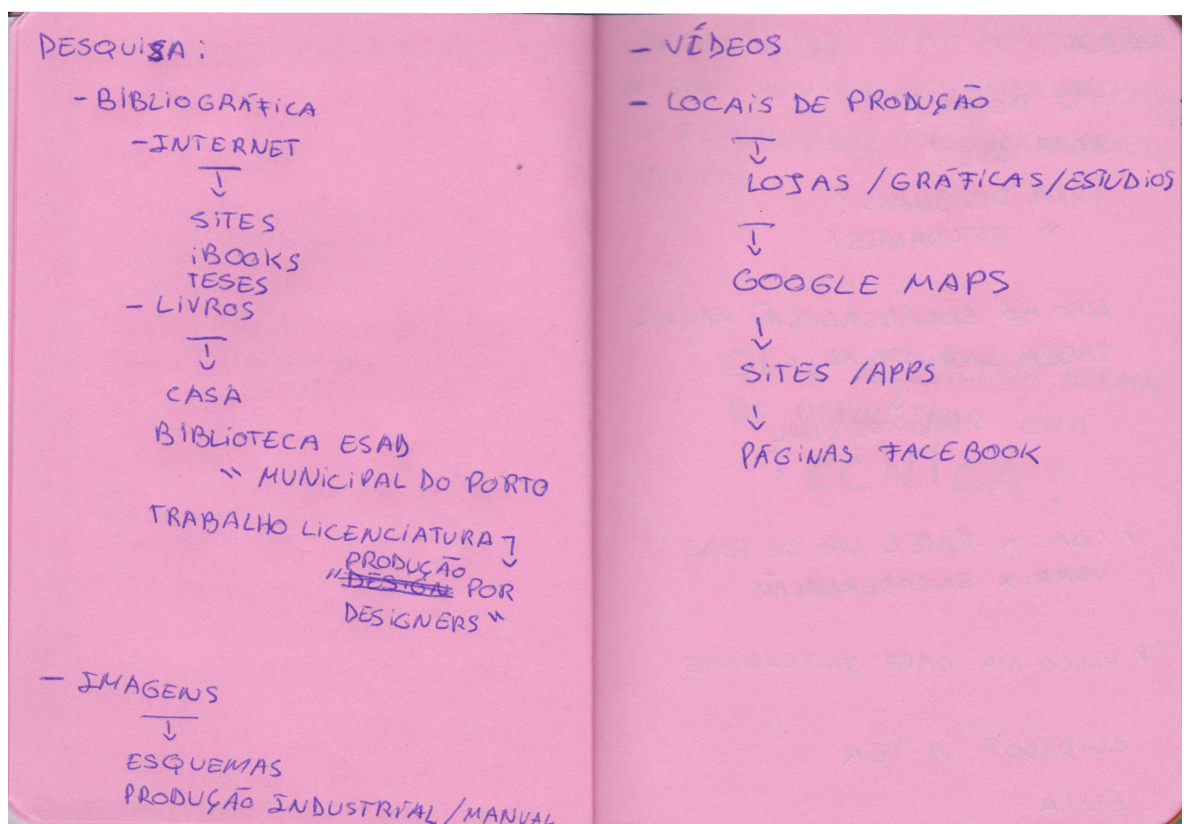 PESQUISA:
- BIBLIOGRÁFICA
- INTERNET
SITES
iBOOKS
TESES
- LIVROS
CASA
BIBLIOTECA ESAD
" MUNICIPAL DO PORTO
TRABALHO LICENCIATURA
PRODUÇÃO
"DESIGN POR
DESIGNERS"
- IMAGENS
ESQUEMAS
PRODUÇÃO INDUSTRIAL/MANUAL
- VÍDEOS
- LOCAIS DE PRODUÇÃO
LOJAS /GRÁFICAS/ESTÚDIOS
GOOGLE MAPS
SITES /APPS
PÁGINAS FACEBOOK